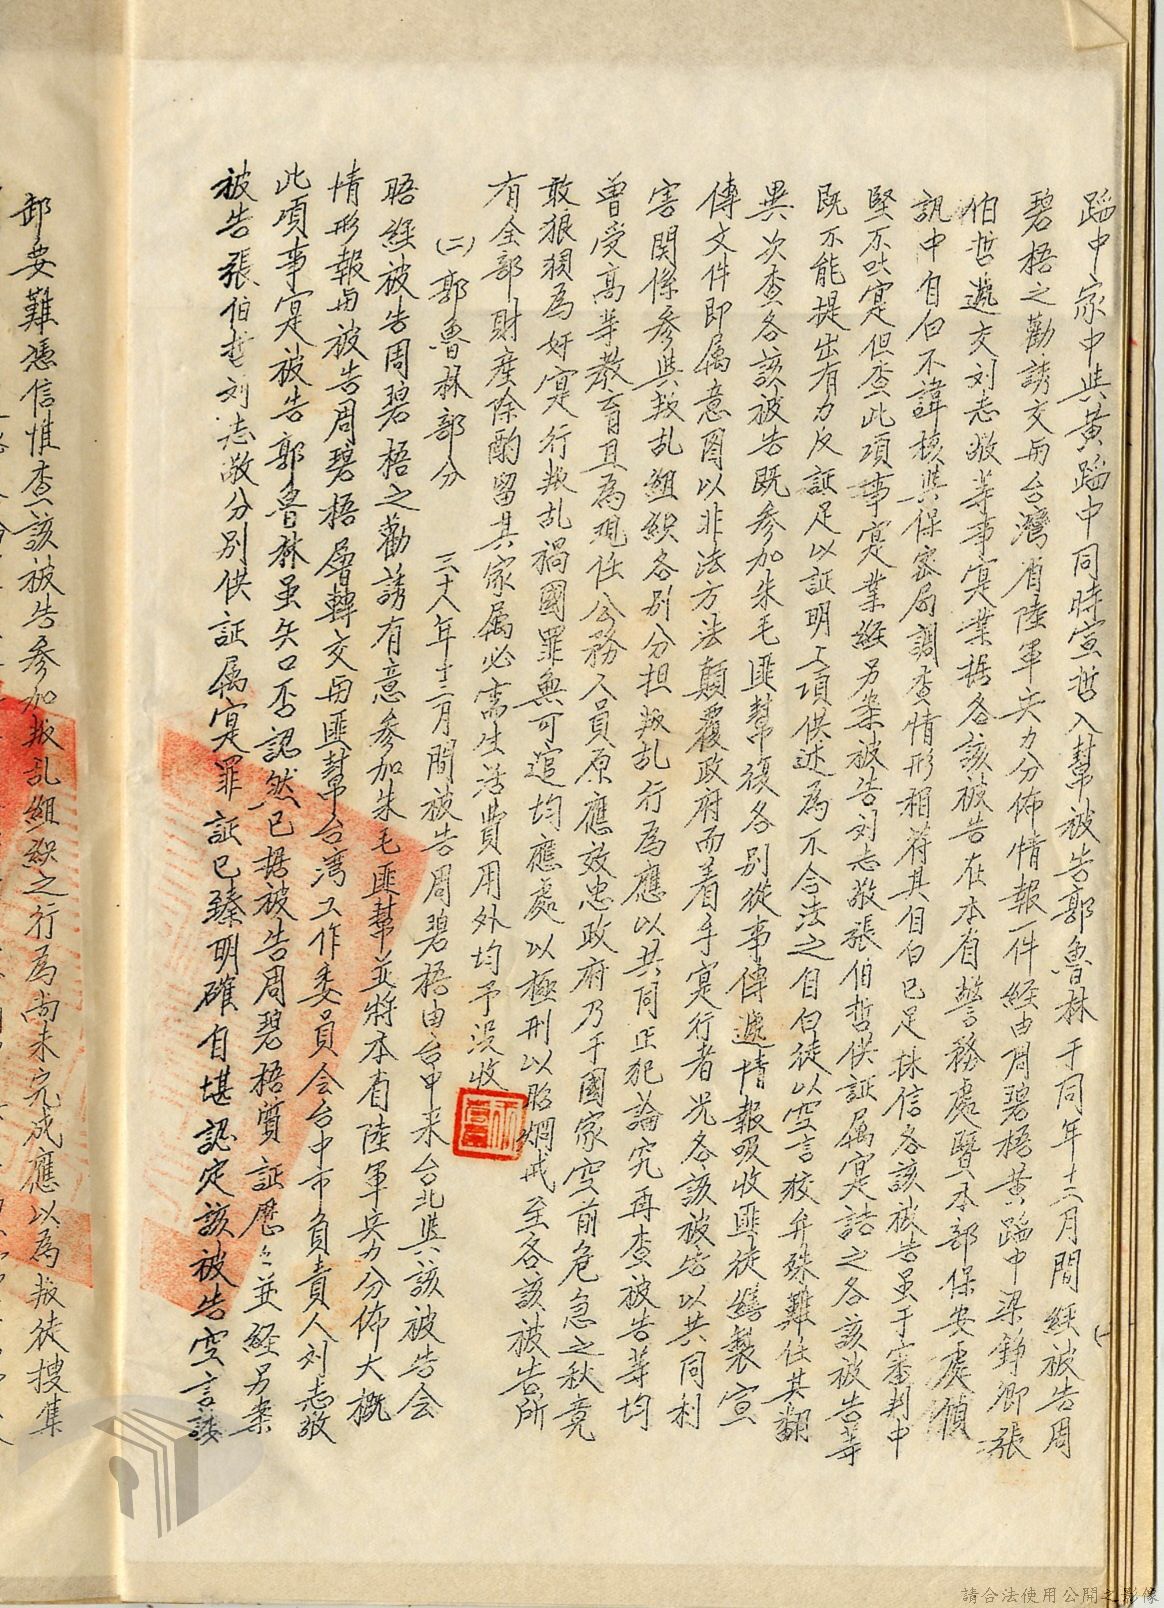 蹈中家中與黃蹈中同時宣哲入幫被告郭魯林于同年十二月間經被告周
碧梧之勸誘交與台灣省陸軍兵力分佈情報一件經由周碧梧黃蹈中梁錚卿張
伯哲遞交刘志敬等事寔業据各該被告在本省警務處暨本部保安處偵
訊中自白不諱核與保密局調查情形相符其自白已足採信各該被告虽于審判中
堅不吐寔但查此項事寔業經另案被告刘志敬張伯哲供証属寔詰之各該被告等
既不能提出有力反証足以証明上項供述為不合法之自白徒以空言狡弁殊難任其翻
異次查各該被告既參加朱毛匪幫復各別從事傳遞情報吸收匪徒繕製宣
傳文件即属意圖以非法方法顛覆政府而着手寔行者况各該被告以共同利
害関係參與叛乱組織各別分担叛乱行為應以共同正犯論究再查被告等均
曾受高等教育且為現任公務人員原應效忠政府乃于國家空前危急之秋竟
敢狼狽為奸寔行叛乱禍國罪無可逭均應處以極刑以昭烱戒至各該被告所
有全部財產除酌留其家属必需生活費用外均予没收
(二)郭魯林部分 三十八年十二月間被告周碧梧由台中来台北與該被告会
晤經被告周碧梧之勸誘有意參加朱毛匪幫並將本省陸軍兵力分佈大概
情形報與被告周碧梧層轉交與匪幫台湾工作委員会台中市負責人刘志敬
此項事寔被告郭魯林虽矢口否認然已据被告周碧梧質証歷々並經另案
被告張伯哲刘志敬分別供証属寔罪証已臻明確自堪認定該被告空言諉
卸要難憑信惟查該被告參加叛乱組织之行為尚未完成應以為叛徒搜集
請合法使用公開之影像